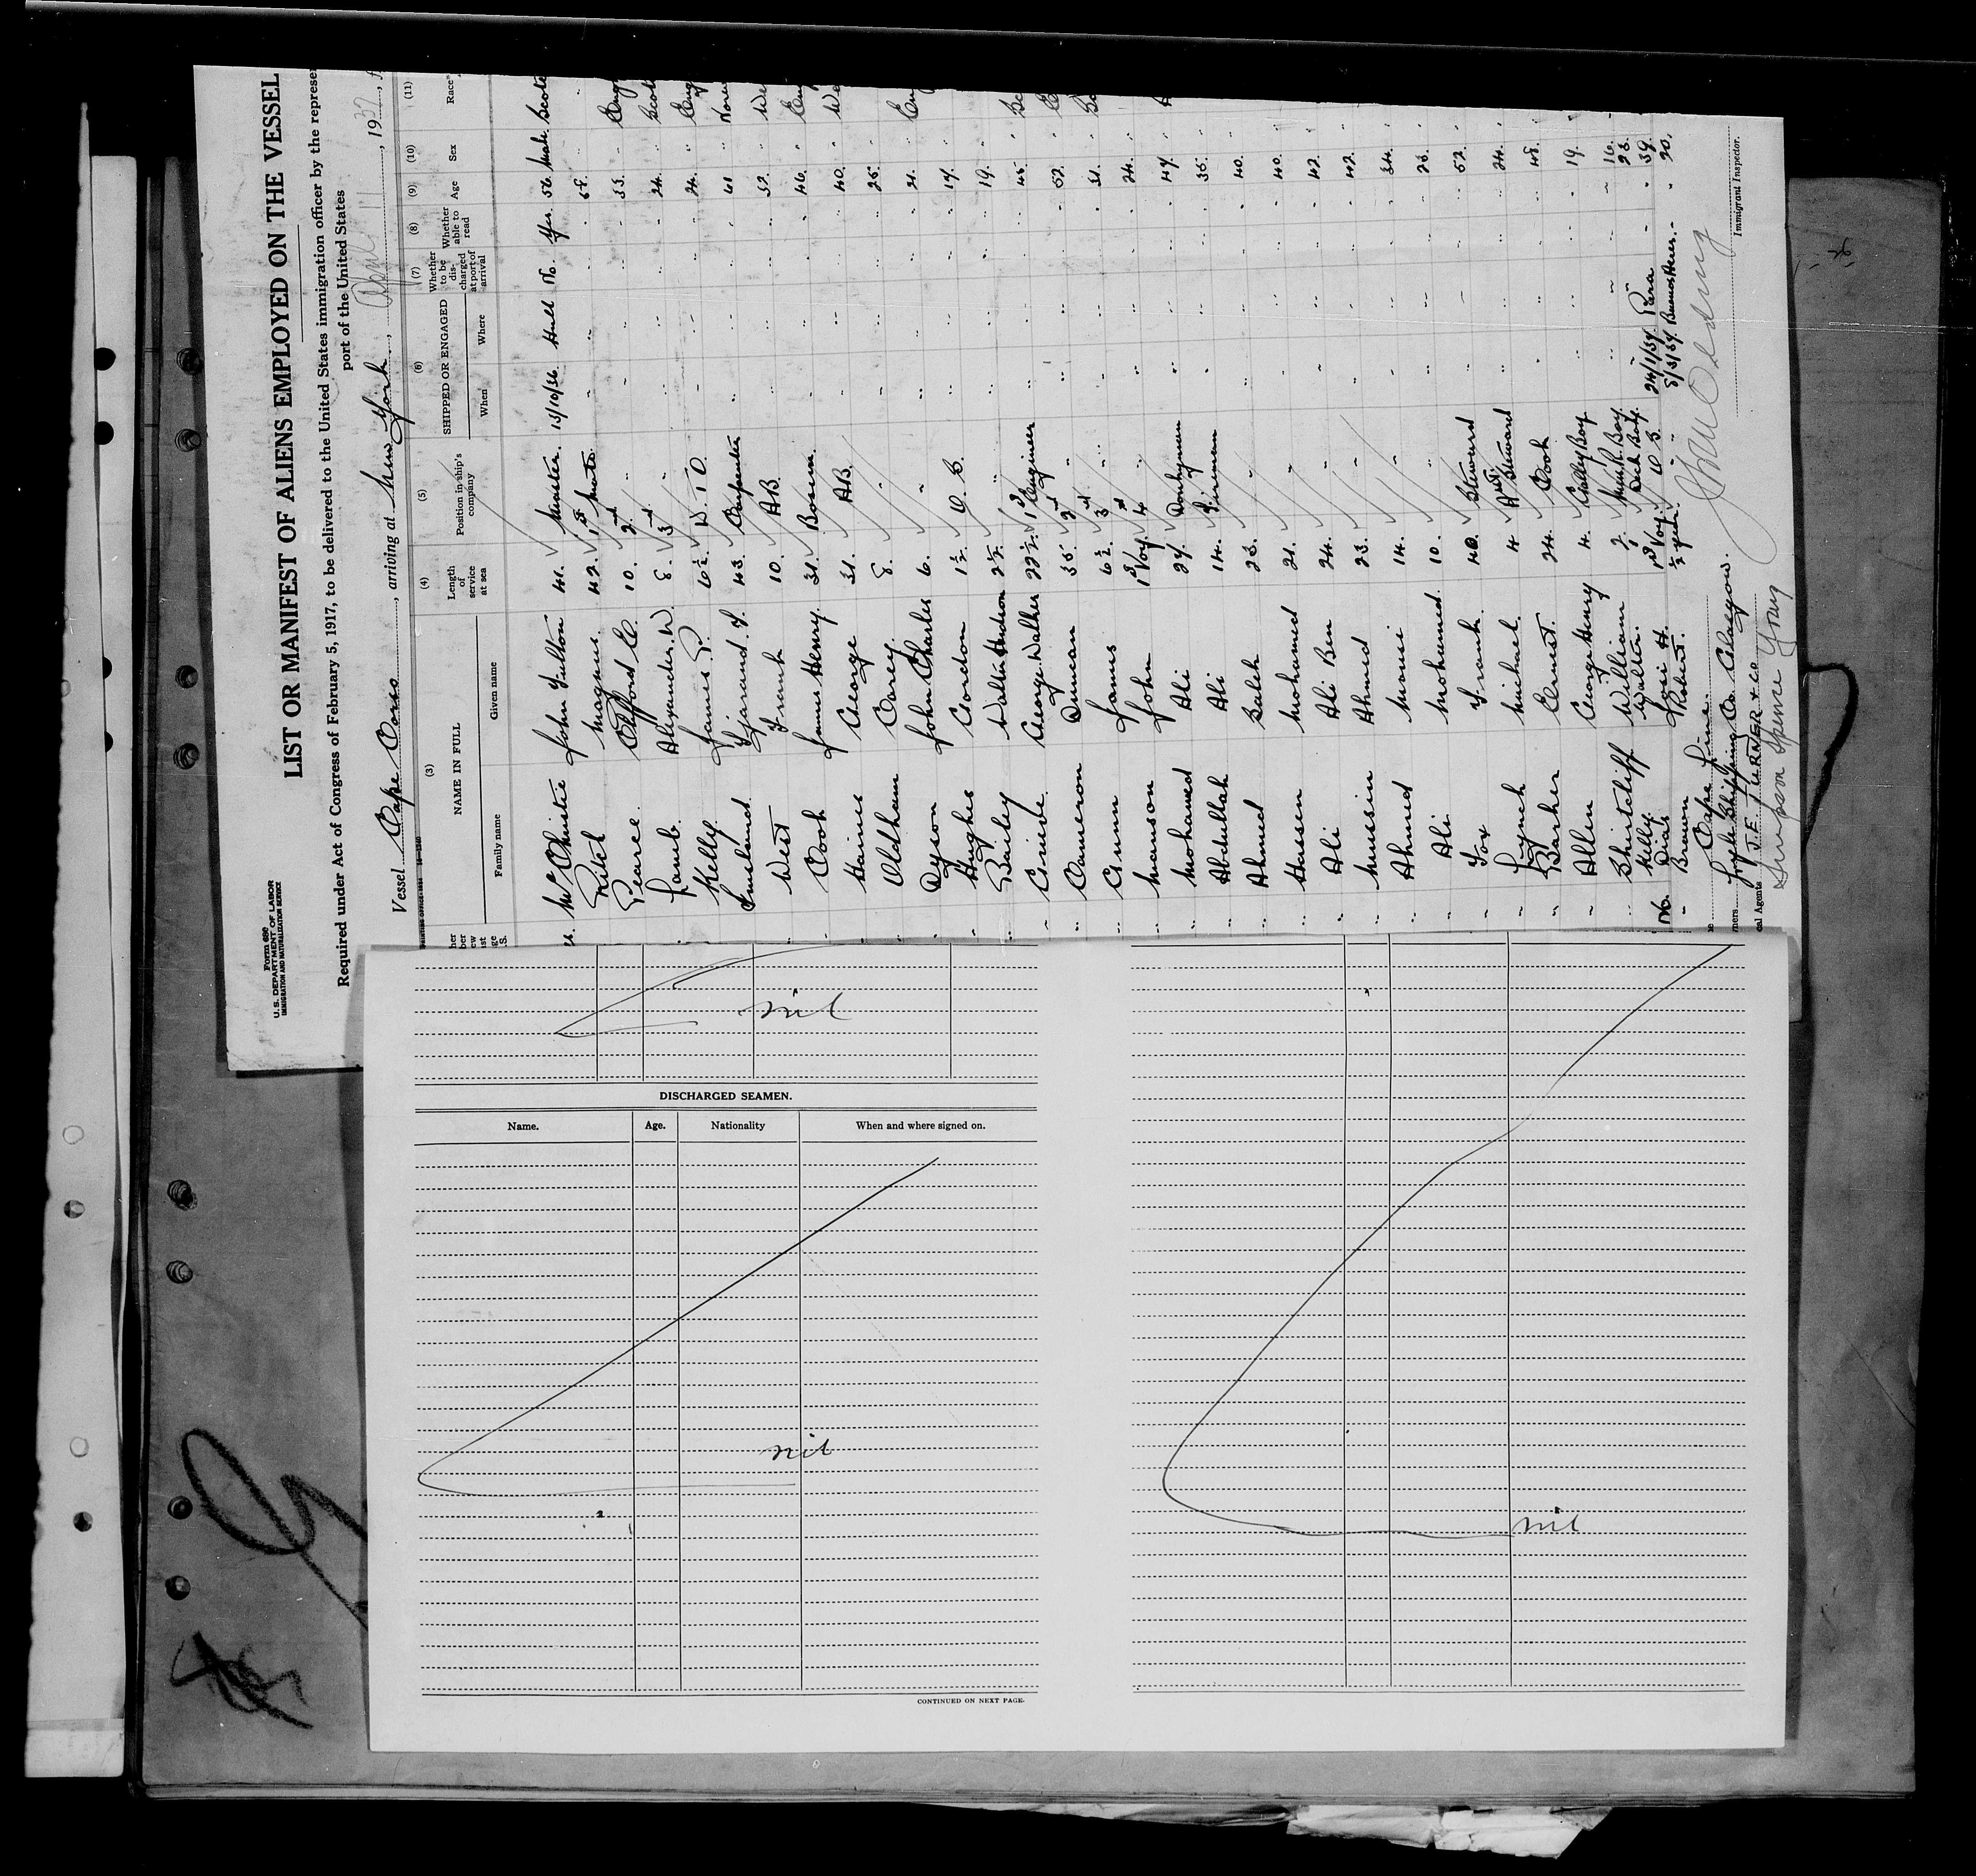 Form 680
U. S. DEPARTMENT OF LABOR
IMMIGRATION AND NATURALIZATION SERVICE
LIST OR MANIFEST OF ALIENS EMPLOYED ON THE VESSEL
Required under Act of Congress of February 5, 1917, to be delivered to the United States immigration officer by the represen
port of the United States
Vessel Cape Corso, arriving at New York, April 11, 1937
(3) (4) (5) (6) (7) (8) (9) (10) (11)
NAME IN FULL Length of service at sea Position in ship's company SHIPPED OR ENGAGED Whether to be discharged at port of arrival Whether able to read Age Sex Race
Family name Given name When Where
McChristie John Fulton 41. Master. 13/10/36. Hull No. Yes. 56. Male. Scotc
Magnus 42. 1st Mate " " " "
Pearce Clifford C. 10. 2nd " " " " 33. " Eng
Lamb. Alexander W. 8. 3rd " " " " 24. " Scot
Kelly. James P. 6½. W.T.O. " " " " 24. " Eng
43. Carpenter " " " " 61 "
West Frank 10. AB. " " " " 32. " We
Cook James Henry. 31. Bosun. " " " " 46. " Eng
Haines George 31. AB. " " " " 40. " We
Oldham Carey. 8. " " " " " 25. "
Dyson John Charles 6. " " " " " 21. " En
Hughes Gordon 1½. O.S. " " " " 17. "
Bailey Walter Hudson 2½. " " " " " 19. "
George Walther 22½. 1st Engineer " " " " 45. " Sc
Cameron Duncan 35. 2nd " " " " " 52. " E
Gunn James 6½. 3rd " " " " " 31. " Sc
Manson John 1st Voy. 4th " " " " " 24. "
Mohamed Ali 27. Donkeyman " " " " 47. "
Abdullah Ali 14. Fireman " " " " 35. "
Ahmed Saleh 23. " " " " " 40. "
Hassen Mohamed 21. " " " " " 40. "
Ali Ali Ben 24. " " " " " 42. "
Mussin Ahmed 23. " " " " " 42. "
Ahmed 14. " " " " " 34. "
Ali Mohamed. 10. " " " " " 28. "
Fox Frank. 40. Steward " " " " 52. "
Lynch Michael. 4 Asst Steward " " " " 24. "
Barker Ernest. 24. Cook " " " " 48. "
Allen George Henry 4. Galley Boy " " " " 19. "
Shirtcliff William 2. Mess R. Boy. " " " " 16.
Kelly. Walter. Deck Boy. " " " " 23.
No. Dias 1st Voy. O.S. 24/1/37. Para " " 39.
" Brannon Robert. " 8/3/37. Buenos Aires. " " 20.
Cape Line.
Lyle Shipping Co. Glasgow.
J.F. TURNER & Co
Simpson Spence Young
Immigrant Inspector.
nil
DISCHARGED SEAMEN.
Name. Age. Nationality When and where signed on.
nil
nil
CONTINUED ON NEXT PAGE.